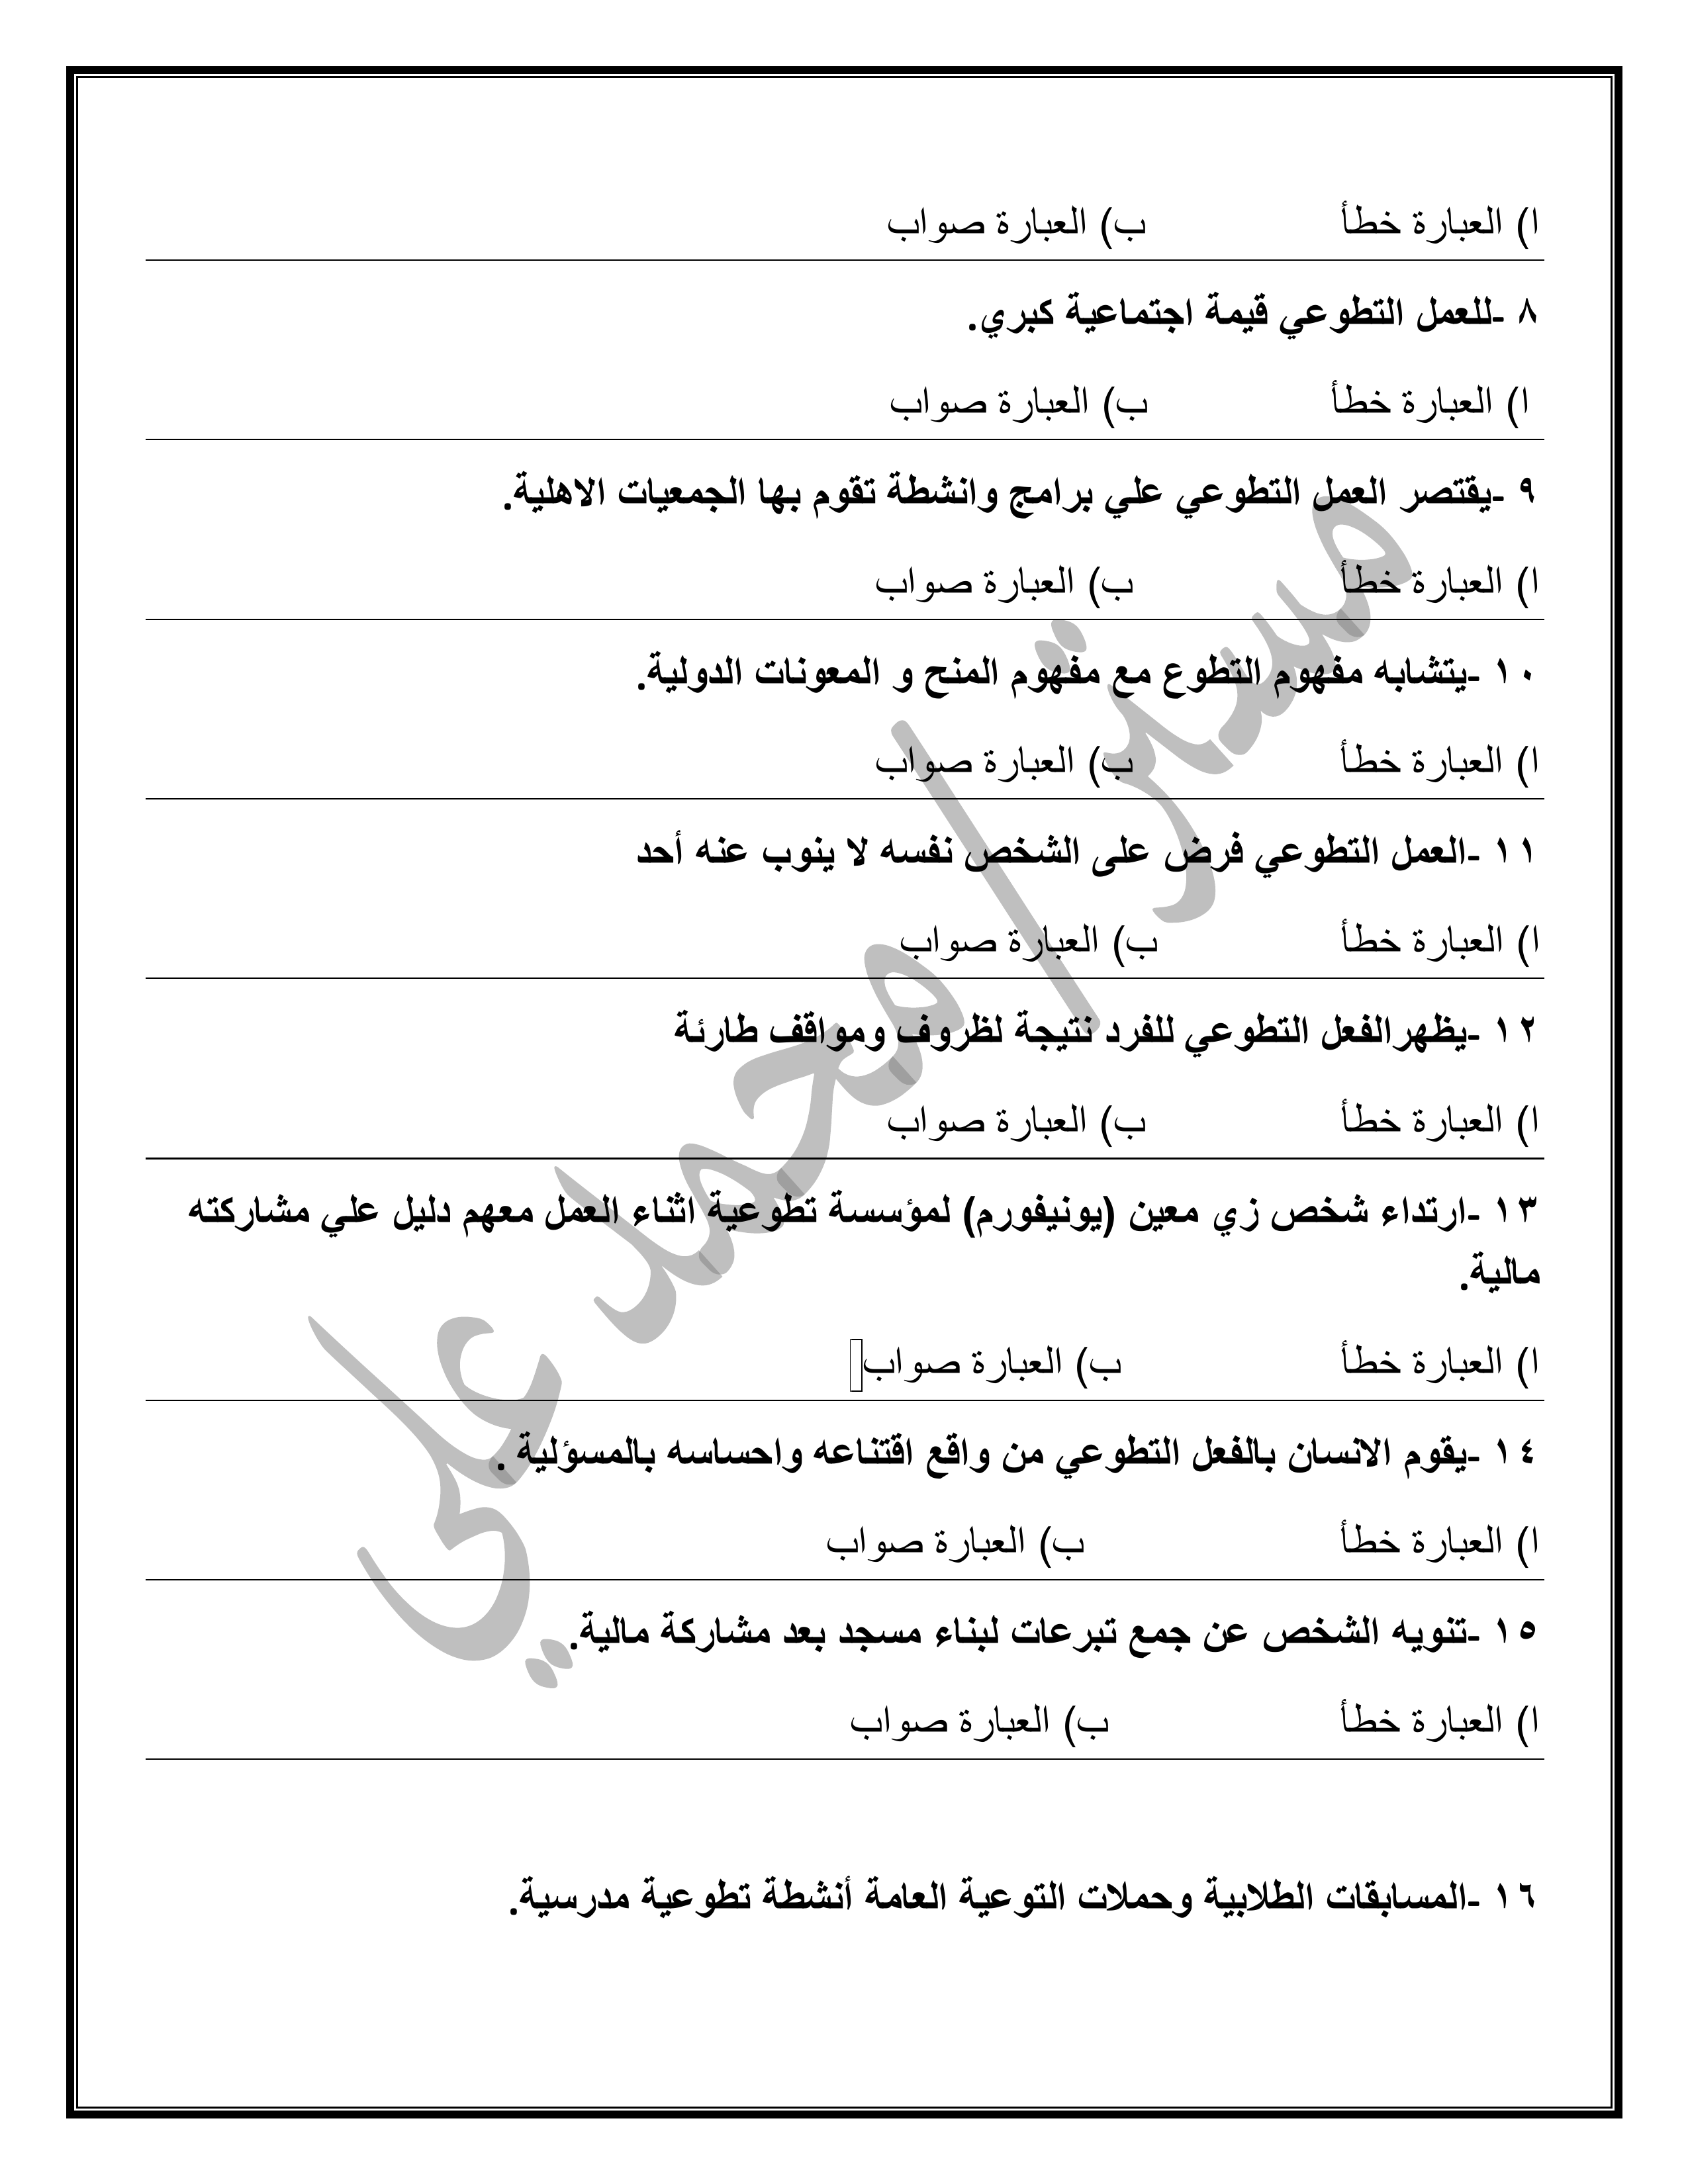 ا) العبارة خطأ ب) العبارة صواب
٨ -للعمل التطوعي قيمة اجتماعية كبري.
ا) العبارة خطأ ب) العبارة صواب
٩ -يقتصر العمل التطوعي علي برامج وانشطة تقوم بها الجمعيات الاهلية.
ا) العبارة خطأ ب) العبارة صواب
١٠ -يتشابه مفهوم التطوع مع مفهوم المنح و المعونات الدولية.
ا) العبارة خطأ ب) العبارة صواب
١١ -العمل التطوعي فرض على الشخص نفسه لا ينوب عنه أحد
ا) العبارة خطأ ب) العبارة صواب
١٢ -يظهرالفعل التطوعي للفرد نتيجة لظروف ومواقف طارئة
ا) العبارة خطأ ب) العبارة صواب
١٣ -ارتداء شخص زي معين (يونيفورم) لمؤسسة تطوعية اثناء العمل معهم دليل علي مشاركته
مالية.
ا) العبارة خطأ ب) العبارة صواب
١٤ -يقوم الانسان بالفعل التطوعي من واقع اقتناعه واحساسه بالمسؤلية .
ا) العبارة خطأ ب) العبارة صواب
١٥ -تنويه الشخص عن جمع تبرعات لبناء مسجد بعد مشاركة مالية.
ا) العبارة خطأ ب) العبارة صواب
١٦ -المسابقات الطلابية وحملات التوعية العامة أنشطة تطوعية مدرسية.
مستر/محمد علي